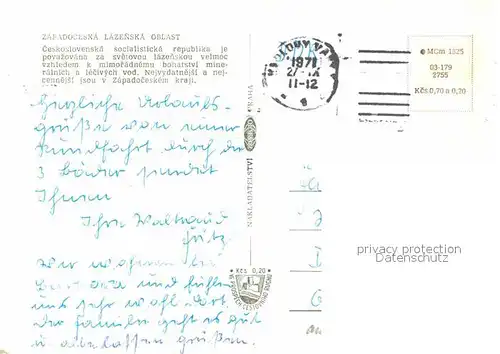 ZÁPADOČESKÁ LÁZEŇSKÁ OBLAST
Československá socialistická republika je
považována za světovou lázeňskou velmoc
vzhledem k mimořádnému bohatství mine-
rálních a léčivých vod. Nejvydatnější a nej-
cennější jsou v Západočeském kraji.
Herzliche Urlaubs-
grüße von einer
Rundfahrt durch die
3 Bäder sendet
Ihnen
Ihre Waltraud
Fritz
Wir wohnen bei
und fühlen
uns sehr wohl dort.
Der Familie geht es gut
u. alle lassen grüßen.
NAKLADATELSTVÍ
PRAHA
Kčs 0,20
KARLOVY VARY
1971
11-12
MCm 1525
03-179
2755
Kčs 0,70 a 0,20
privacy protection
Datenschutz